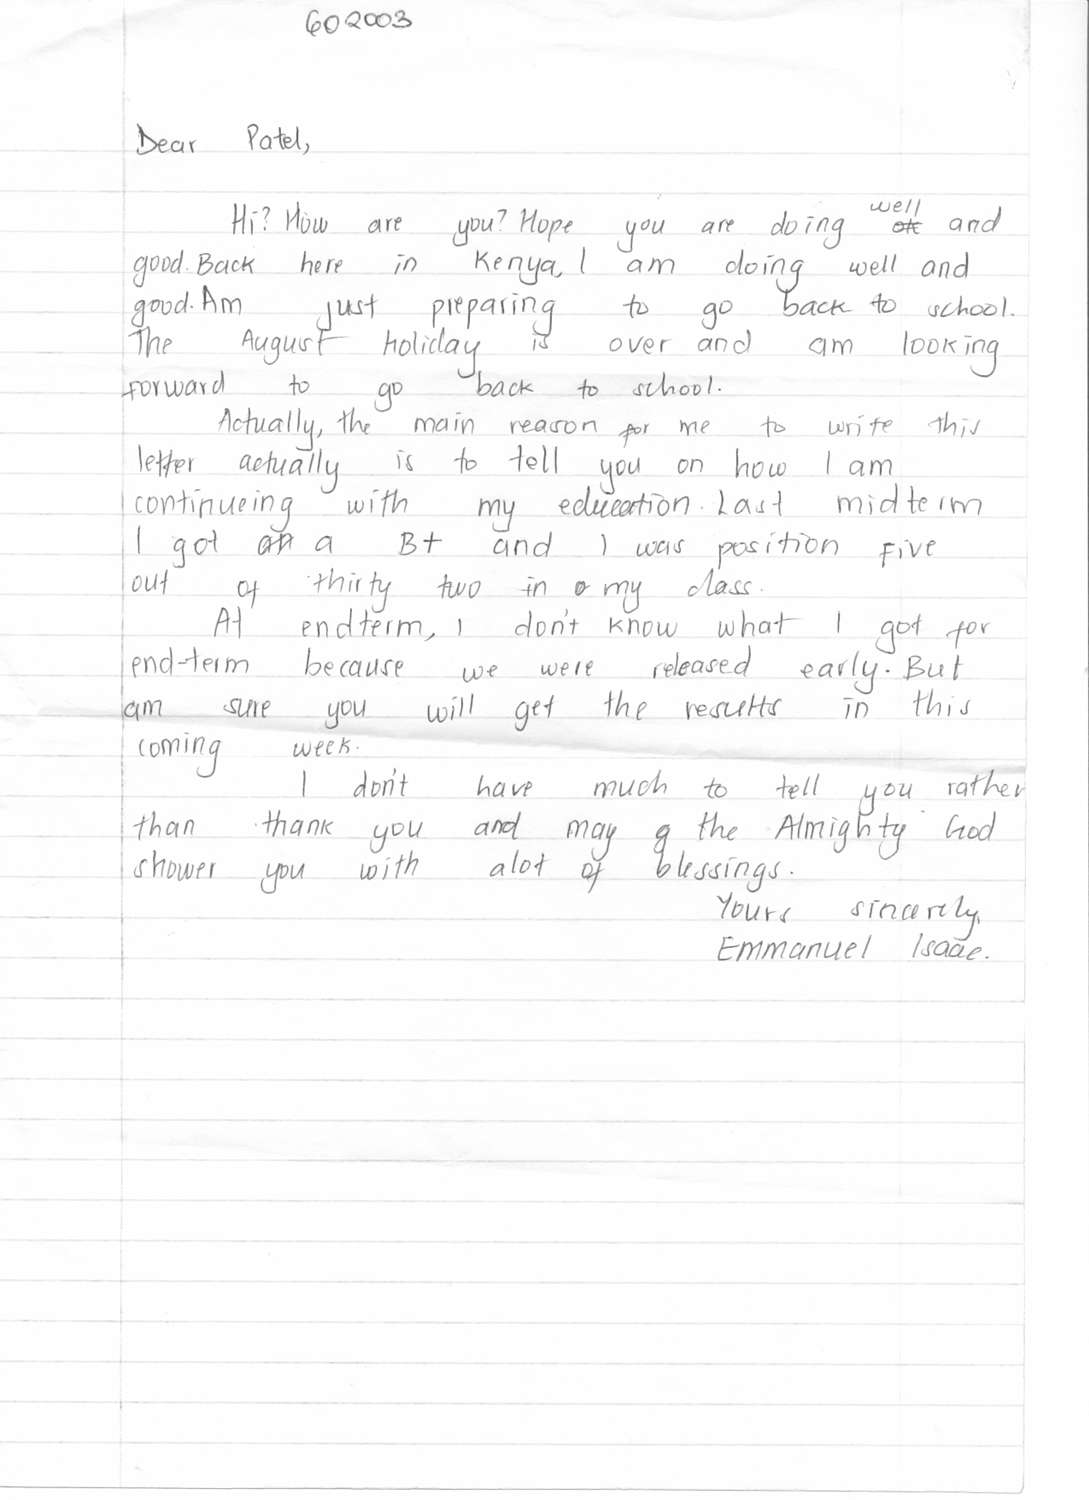 602003
Dear Patel,
Hi? How are you? Hope you are doing well and
good. Back here in Kenya, I am doing well and
good. Am just preparing to go back to school.
The August holiday is over and am looking
forward to go back to school.
Actually, the main reason for me to write this
letter actually is to tell you on how I am
continueing with my education. Last midterm
I got a B+ and I was position five
out of thirty two in my class.
At endterm, I don't know what I got for
end-term because we were released early. But
am sure you will get the results in this
coming week.
I don't have much to tell you rather
than thank you and may the Almighty God
shower you with alot of blessings.
Yours sincerely,
Emmanuel Isaac.